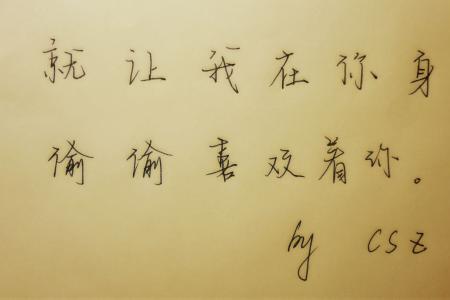 就让我在你身
偷偷喜欢着你。
by CSZ